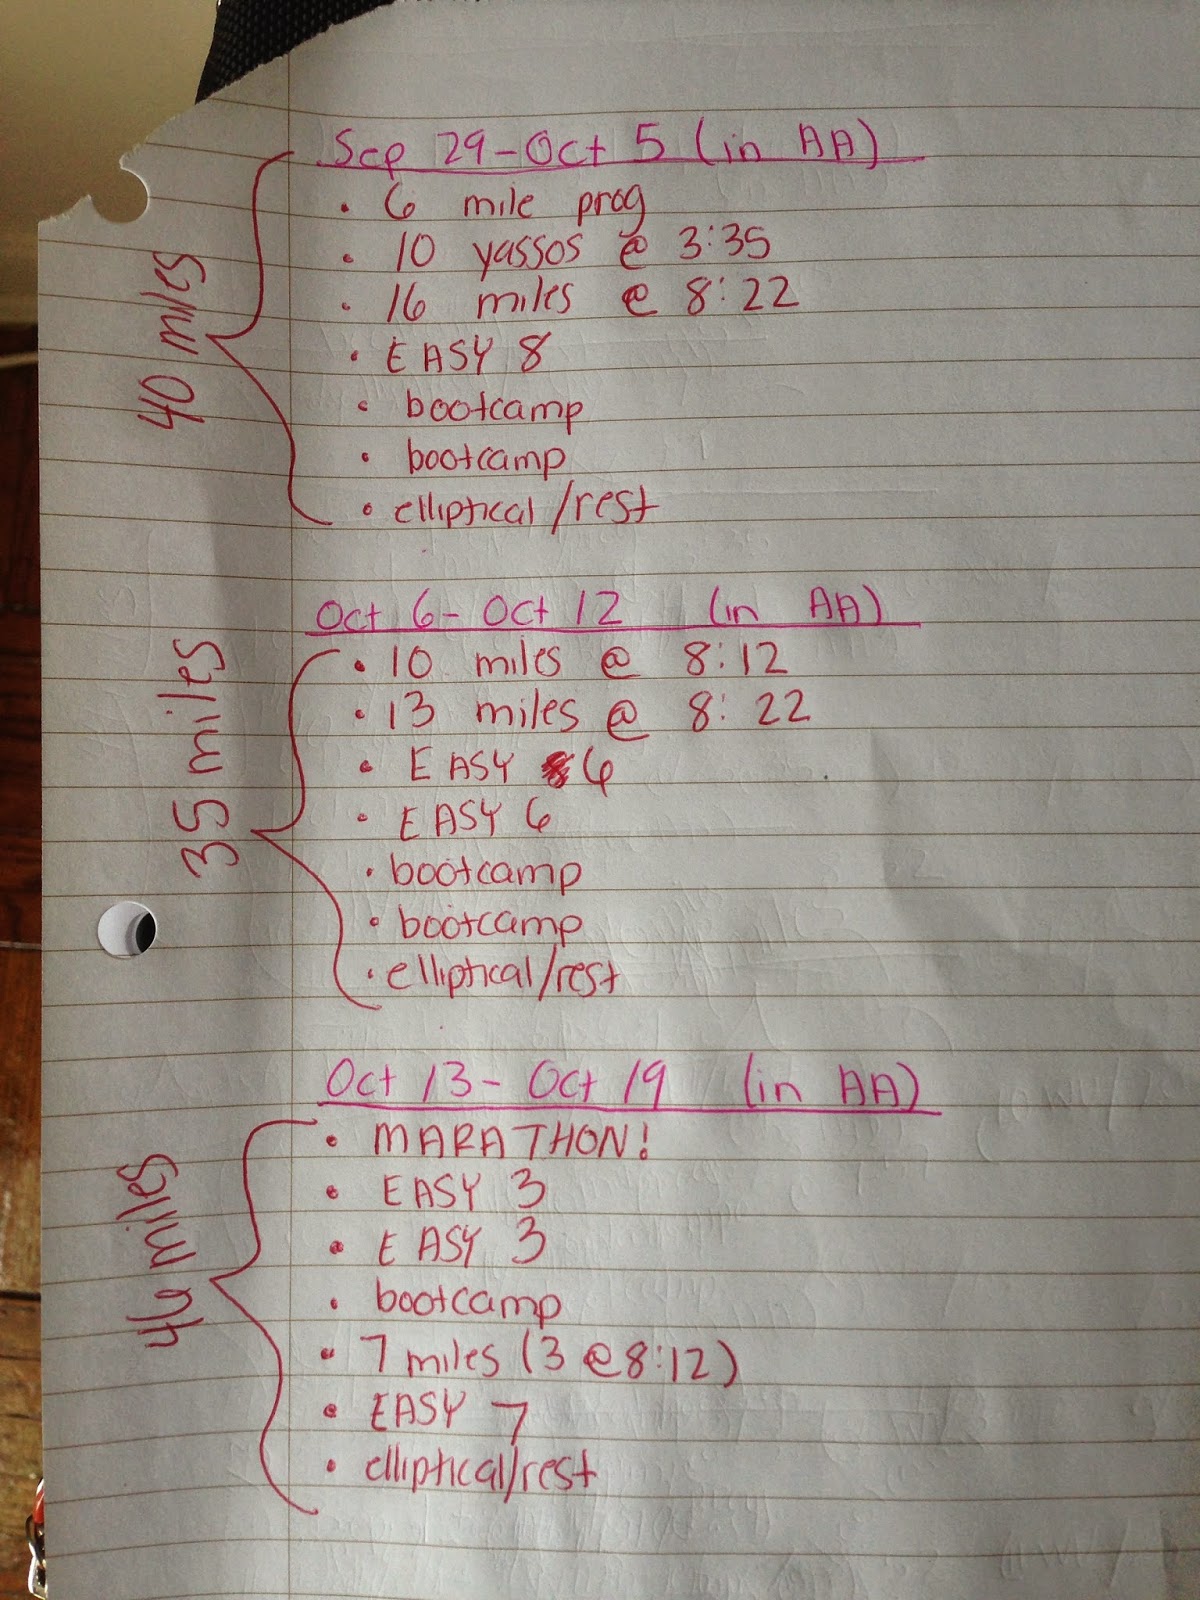 Sep 29-Oct 5 (in AA)
40 miles
• 6 mile prog
• 10 yassos @ 3:35
• 16 miles @ 8:22
• EASY 8
• bootcamp
• bootcamp
• elliptical/rest
Oct 6-Oct 12 (in AA)
35 miles
• 10 miles @ 8:12
• 13 miles @ 8:22
• EASY 6
• EASY 6
• bootcamp
• bootcamp
• elliptical/rest
Oct 13-Oct 19 (in AA)
46 miles
• MARATHON!
• EASY 3
• EASY 3
• bootcamp
• 7 miles (3 @ 8:12)
• EASY 7
• elliptical/rest